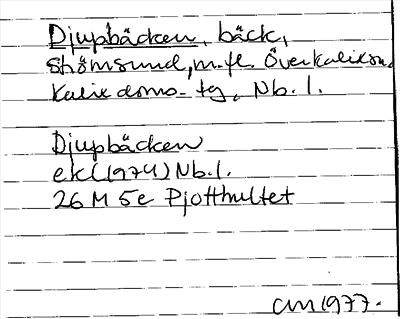 Djupbäcken, bäck,
Strömsund, m.fl. Överkalix sn,
Kalix doms-tg, Nb. l.
Djupbäcken
ek (1974) Nb. l.
26 M 5e Pjotthultet
CM 1977.